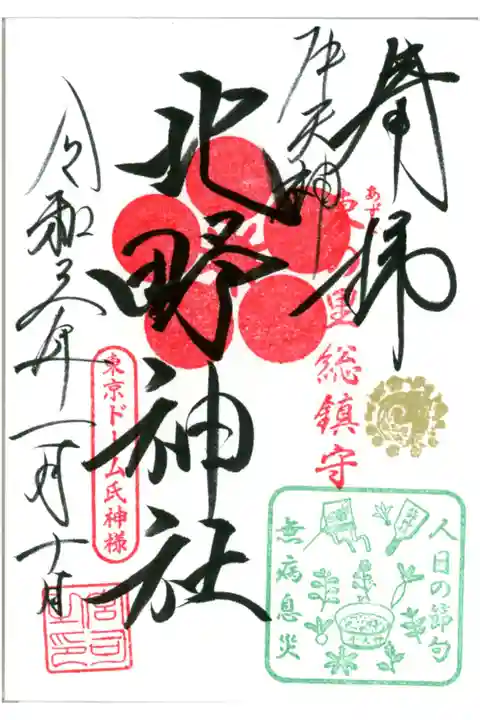 奉拝
牛天神
里総鎮守
北野神社
令和三年一月十日
東京ドーム氏神様
宮司之印
人日の節句
無病息災